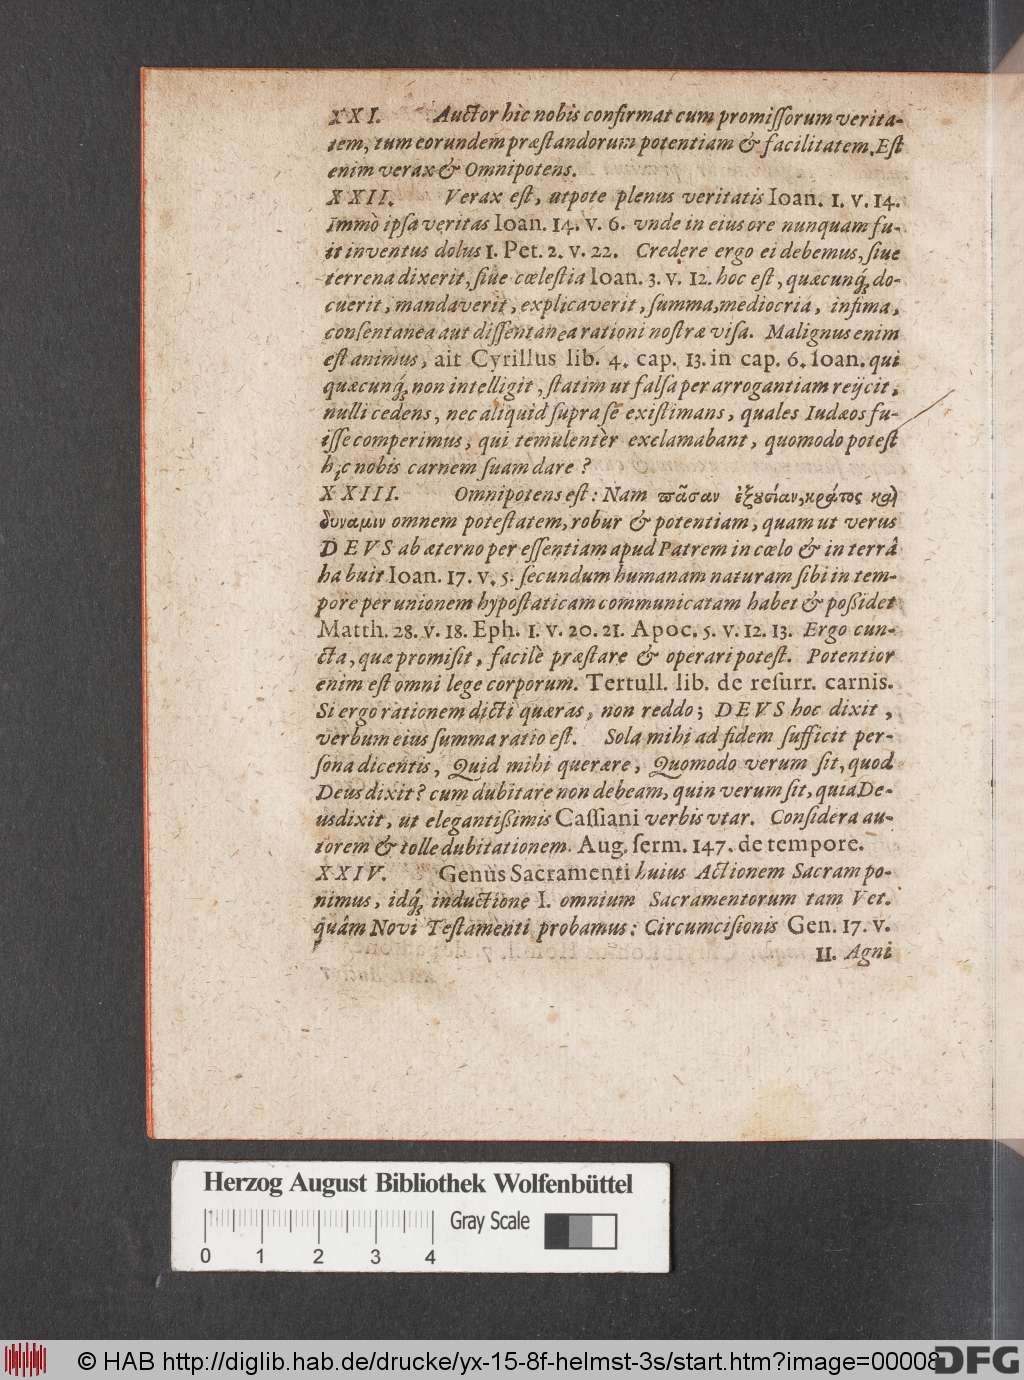 XXI. Auctor hic nobis confirmat cum promiſſorum verita-
tem, tum eorundem præſtandorum potentiam & facilitatem. Eſt
enim verax & Omnipotens.
XXII. Verax eſt, utpote plenus veritatis Ioan. 1. v. 14.
Immò ipſa veritas Ioan. 14. v. 6. vnde in eius ore nunquam fu-
it inventus dolus 1. Pet. 2. v. 22. Credere ergo ei debemus, ſiue
terrena dixerit, ſiue cœleſtia Ioan. 3. v. 12. hoc eſt, quæcunq́; do-
cuerit, mandaverit, explicaverit, ſumma, mediocria, infima,
conſentanea aut diſſentanea rationi noſtræ viſa. Malignus enim
eſt animus, ait Cyrillus lib. 4. cap. 13. in cap. 6. Ioan. qui
quæcunq́; non intelligit, ſtatim ut falſa per arrogantiam reijcit,
nulli cedens, nec aliquid ſupra ſe exiſtimans, quales Iudæos fu-
iſſe comperimus, qui temulentèr exclamabant, quomodo poteſt
hic nobis carnem ſuam dare?
XXIII. Omnipotens eſt: Nam πᾶσαν ἐξουσίαν, κράτος καὶ
δυναμιν omnem poteſtatem, robur & potentiam, quam ut verus
DEVS ab æterno per eſſentiam apud Patrem in cœlo & in terrâ
habuit Ioan. 17. v. 5. ſecundum humanam naturam ſibi in tem-
pore per unionem hypoſtaticam communicatam habet & poßidet
Matth. 28. v. 18. Eph. 1. v. 20. 21. Apoc. 5. v. 12. 13. Ergo cun-
cta, quæ promiſit, facilè præſtare & operari poteſt. Potentior
enim eſt omni lege corporum. Tertull. lib. de reſurr. carnis.
Si ergo rationem dicti quæras, non reddo; DEVS hoc dixit,
verbum eius ſumma ratio eſt. Sola mihi ad fidem ſufficit per-
ſona dicentis, Quid mihi querære, Quomodo verum ſit, quod
Deus dixit? cum dubitare non debeam, quin verum ſit, quia De-
us dixit, ut elegantißimis Caſſiani verbis vtar. Conſidera au-
torem & tolle dubitationem. Aug. ſerm. 147. de tempore.
XXIV. Genus Sacramenti huius Actionem Sacram po-
nimus, idq́; inductione I. omnium Sacramentorum tam Vet.
quâm Novi Teſtamenti probamus: Circumciſionis Gen. 17. v.
11. Agni
Herzog August Bibliothek Wolfenbüttel
Gray Scale
0 1 2 3 4
© HAB http://diglib.hab.de/drucke/yx-15-8f-helmst-3s/start.htm?image=00008
DFG